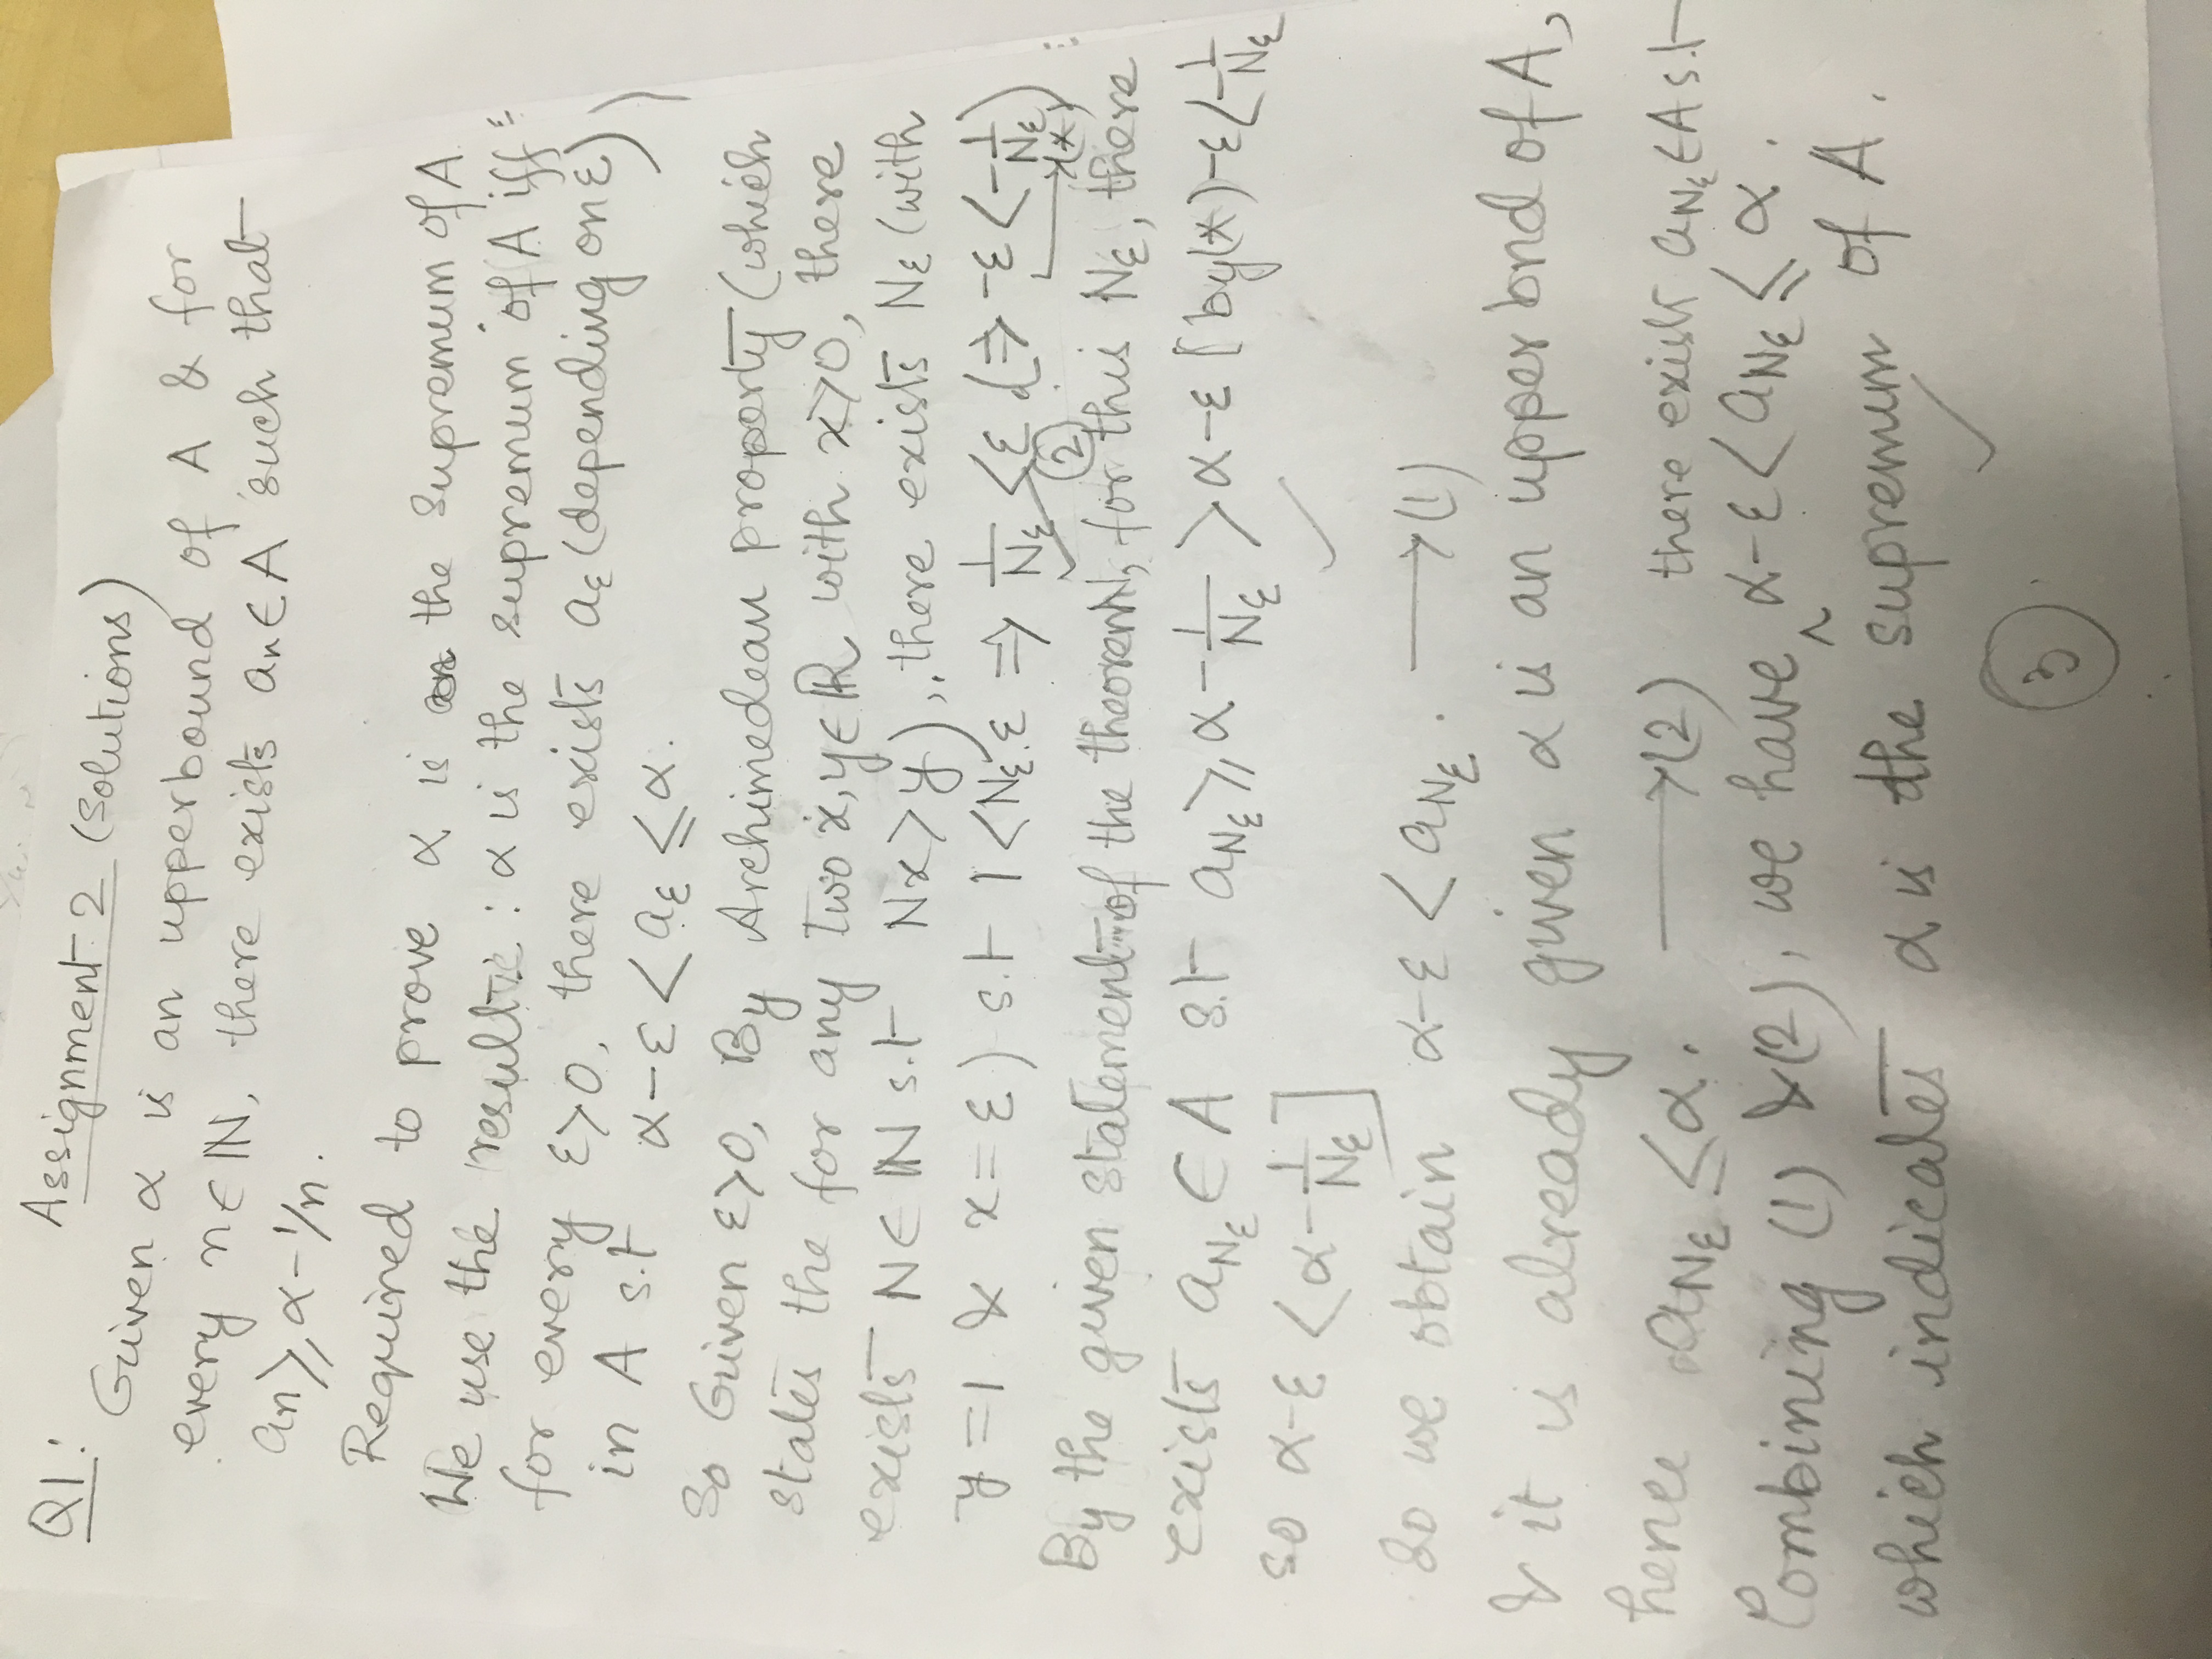 Q1: Assignment 2 (Solutions)
Given α is an upperbound of A & for
every n∈ℕ, there exists an∈A such that
an⩾α-1/n.
Required to prove α is the supremum of A
We use the result : α is the supremum of A iff
for every ε>0, there exists aε (depending on ε)
in A s.t α-ε < aε ≤ α.
So Given ε>0, By Archimedean property (which
states the for any two x,y∈ℝ with x>0, there
exists N∈ℕ s.t Nx>y), there exists Nε (with
y=1 & x=ε) s.t 1<Nε.ε ⇒ 1/Nε <ε (⇒ -ε<-1/Nε)
② →(*)
By the given statement of the theorem, for this Nε, there
exists aNε ∈ A s.t aNε ⩾ α-1/Nε > α-ε [by(*)-ε<-1/Nε
so α-ε < α-1/Nε]
So we obtain α-ε < aNε. →(1)
& it is already given α is an upper bnd of A,
hence aNε ≤ α. →(2) there exist aNε∈A s.t
Combining (1) &(2), we have ^ α-ε < aNε ≤ α.
which indicates α is the supremum of A.
③